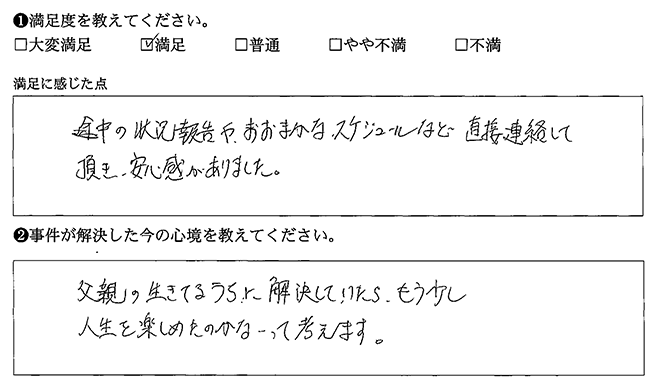 ❶満足度を教えてください。
□大変満足 ☑満足 □普通 □やや不満 □不満
満足に感じた点
途中の状況報告や、おおまかなスケジュールなど 直接連絡して
頂き、安心感がありました。
❷事件が解決した今の心境を教えてください。
父親の生きてるうちに解決していたら、もう少し
人生を楽しめたのかなーって考えます。